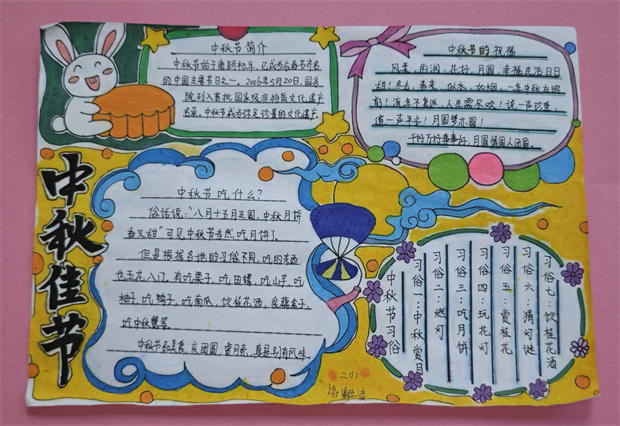 中秋佳节
中秋节简介
中秋节始于唐朝初年,已成为与春节齐名
的中国主要节日之一。2006年5月20日,国务
院列入首批国家级非物质文化遗产
名录。中秋节成为弥足珍贵的文化遗产。
中秋节的祝福
风柔,雨润,花好,月圆,幸福生活日日
甜!冬去,春来,似水,如烟,一年中秋在眼
前!流年不复返,人生需尽欢!说一声珍重,
道一声平安!月圆梦亦圆!
千好万好事事好,月圆情圆人团圆。
中秋节吃什么?
俗话说:"八月十五月正圆,中秋月饼
香又甜"可见中秋节当然吃月饼了。
但是根据各地的习俗不同,吃的东西
也五花八门,有吃栗子,吃田螺,吃山芋,吃
柚子,吃鸭子,吃南瓜,饮桂花酒,
吃中秋蟹等。
中秋节品美食,庆团圆,赏月亮,真是别有风味。
中秋节习俗
习俗一:中秋赏月
习俗二:燃灯
习俗三:吃月饼
习俗四:玩花灯
习俗五:赏桂花
习俗六:猜灯谜
习俗七:饮桂花酒